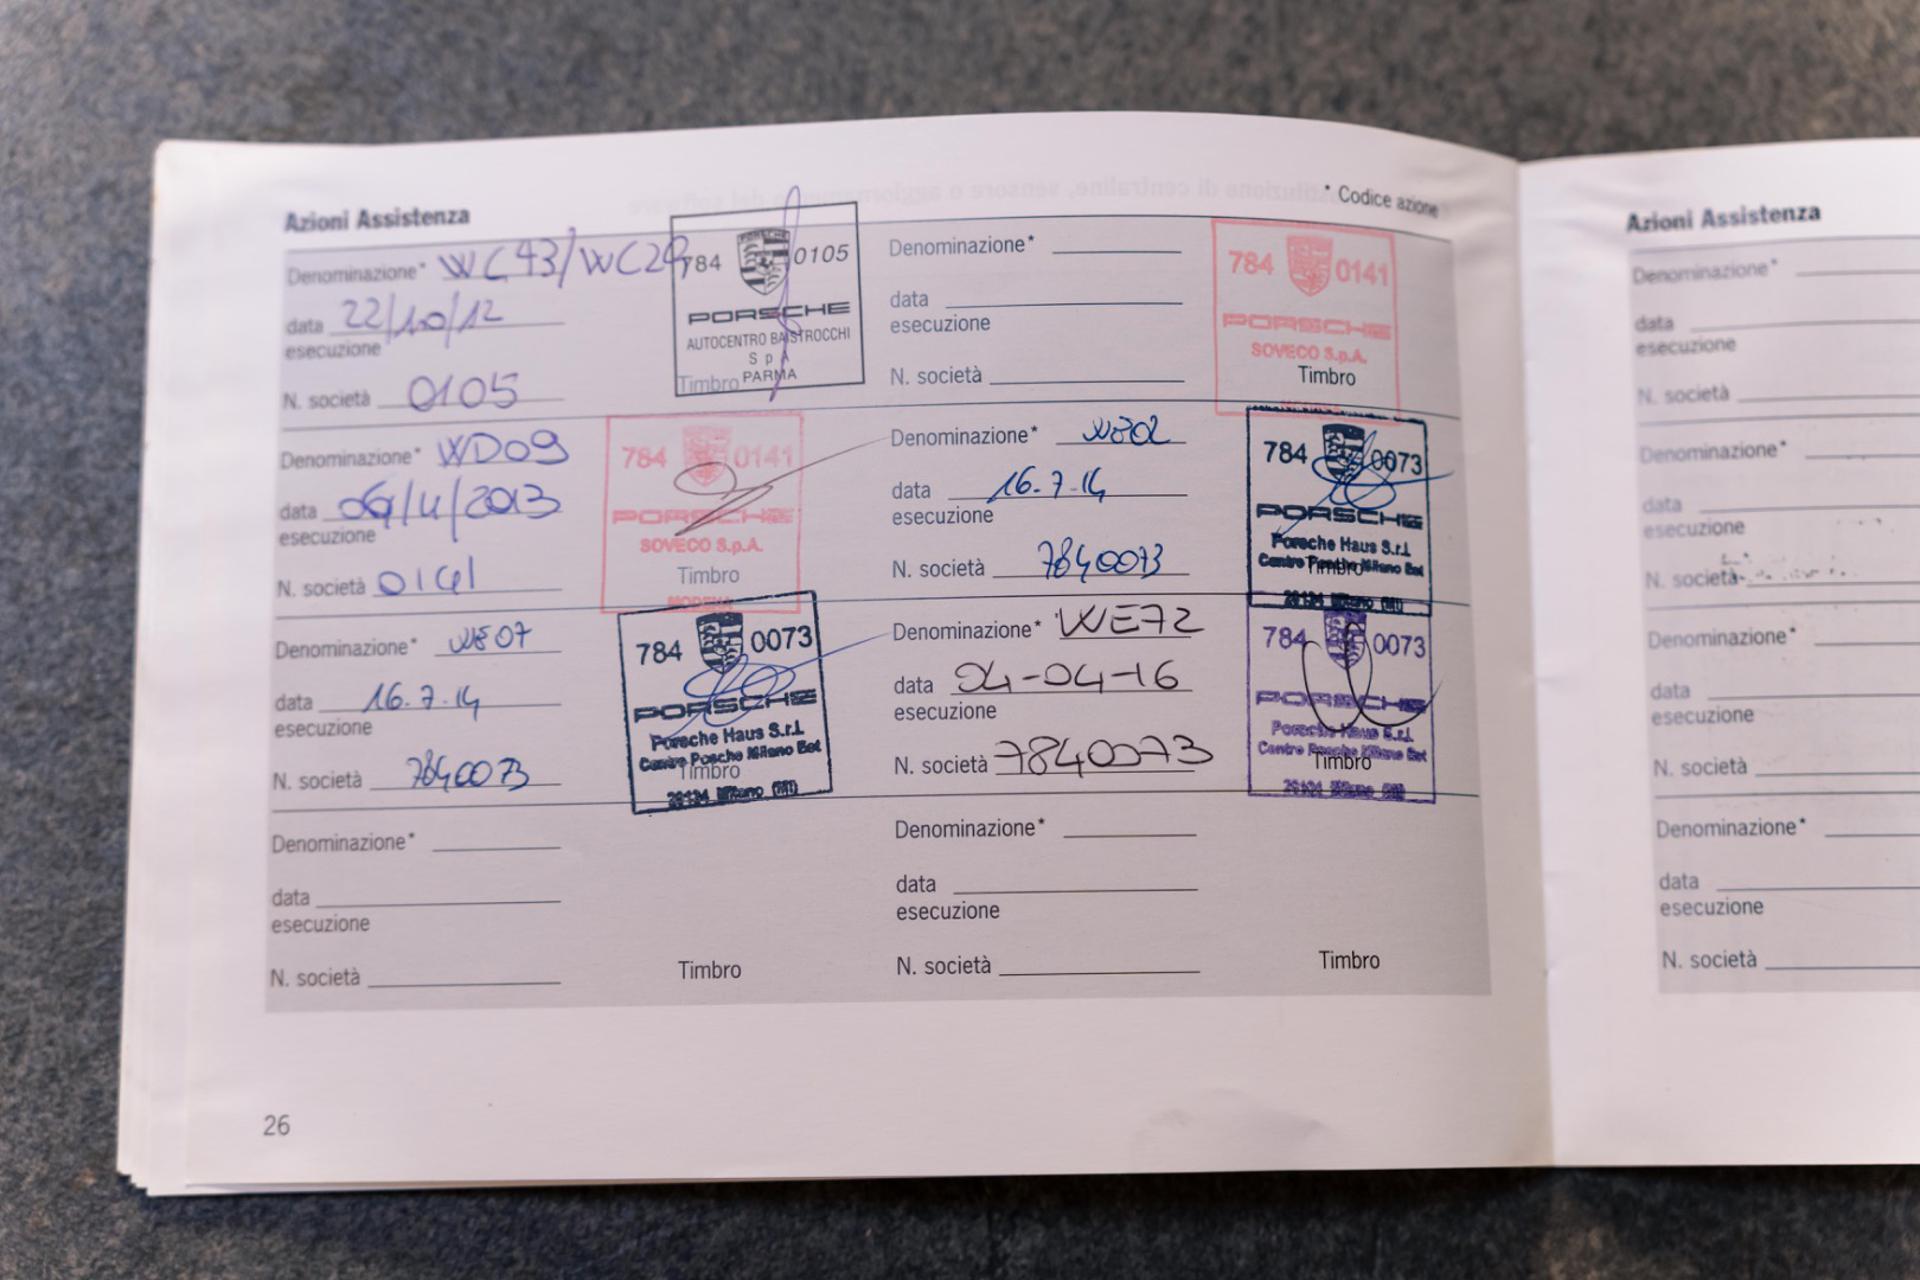 * Codice azione
Azioni Assistenza
Denominazione* WC43/WC29
data 22/10/12
esecuzione
N. società 0105
784 0105
PORSCHE
AUTOCENTRO BAISTROCCHI
S p A
Timbro PARMA
Denominazione*
data
esecuzione
N. società
784 0141
PORSCHE
SOVECO S.p.A.
Timbro
MODENA
Denominazione* WD09
data
esecuzione
N. società 0141
784 0141
PORSCHE
SOVECO S.p.A.
Timbro
MODENA
Denominazione*
data 16.7.14
esecuzione
N. società 7840073
784 0073
PORSCHE
Porsche Haus S.r.l.
Centro Porsche Milano Est
Timbro
20134 Milano (MI)
Denominazione* WE07
data 16.7.14
esecuzione
N. società 7840073
784 0073
PORSCHE
Porsche Haus S.r.l.
Centro Porsche Milano Est
Timbro
20134 Milano (MI)
Denominazione* WE72
data 04-04-16
esecuzione
N. società 7840073
784 0073
PORSCHE
Porsche Haus S.r.l.
Centro Porsche Milano Est
Timbro
20134 Milano (MI)
Denominazione*
data
esecuzione
N. società
Timbro
Denominazione*
data
esecuzione
N. società
Timbro
26
Azioni Assistenza
Denominazione*
data
esecuzione
N. società
Denominazione*
data
esecuzione
N. società
Denominazione*
data
esecuzione
N. società
Denominazione*
data
esecuzione
N. società